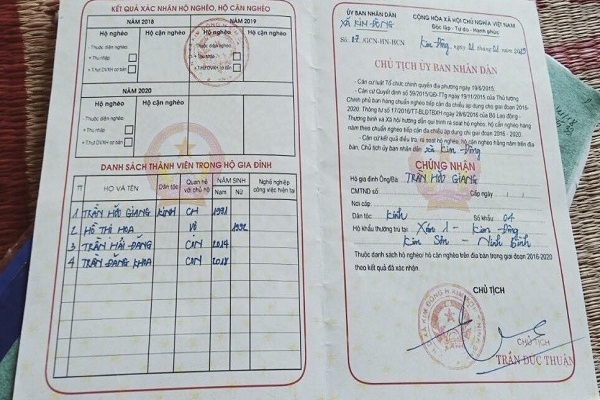 KẾT QUẢ XÁC NHẬN HỘ NGHÈO, HỘ CẬN NGHÈO
NĂM 2018
NĂM 2019
Hộ nghèo
Hộ cận nghèo
Hộ nghèo
Hộ cận nghèo
- Thuộc diện nghèo
- Thuộc diện nghèo
+ Thu nhập
+ Thu nhập
+ Thiếu DVXH cơ bản
+ Thiếu DVXH cơ bản
NĂM 2020
Hộ nghèo
Hộ cận nghèo
DANH SÁCH THÀNH VIÊN TRONG HỘ GIA ĐÌNH
TT
HỌ VÀ TÊN
Dân tộc
Quan hệ với chủ hộ
NĂM SINH
Nam
Nữ
Nghề nghiệp công việc hiện tại
1 TRẦN HỮU GIANG Kinh CH 1981
2 HỒ THỊ HOA Vợ 1992
3 TRẦN HẢI ĐĂNG CON 2014
4 TRẦN ĐĂNG KHOA CON 2018
ỦY BAN NHÂN DÂN
XÃ KIM ĐÔNG
Số: 17 /GCN-HN-HCN
CỘNG HÒA XÃ HỘI CHỦ NGHĨA VIỆT NAM
Độc lập - Tự do - Hạnh phúc
CHỦ TỊCH ỦY BAN NHÂN DÂN
- Căn cứ luật Tổ chức chính quyền địa phương ngày 19/6/2015;
- Căn cứ Quyết định số 59/2015/QĐ-TTg ngày 19/11/2015 của Thủ tướng
Chính phủ ban hành chuẩn nghèo tiếp cận đa chiều áp dụng cho giai đoạn 2016-
2020. Thông tư số 17/2016/TT-BLĐTBXH ngày 28/6/2016 của Bộ Lao động -
Thương binh và Xã hội hướng dẫn qui trình rà soát hộ nghèo, hộ cận nghèo hàng
năm theo chuẩn nghèo tiếp cận đa chiều áp dụng cho giai đoạn 2016 - 2020.
- Căn cứ kết quả điều tra, rà soát hộ nghèo, hộ cận nghèo hàng năm trên địa
bàn, Chủ tịch ủy ban nhân dân xã Kim Đông
CHỨNG NHẬN
Hộ gia đình Ông/Bà: TRẦN HỮU GIANG
CMTND số: Cấp ngày / /
Nơi cấp
Dân tộc: Kinh Số khẩu: 04
Hộ khẩu thường trú tại: Xóm 1 - Kim Đông
Kim Sơn - Ninh Bình
Thuộc danh sách hộ nghèo/ hộ cận nghèo trên địa bàn trong giai đoạn 2016-2020
theo kết quả đã xác nhận.
CHỦ TỊCH
CHỦ TỊCH
TRẦN ĐỨC THUẬN